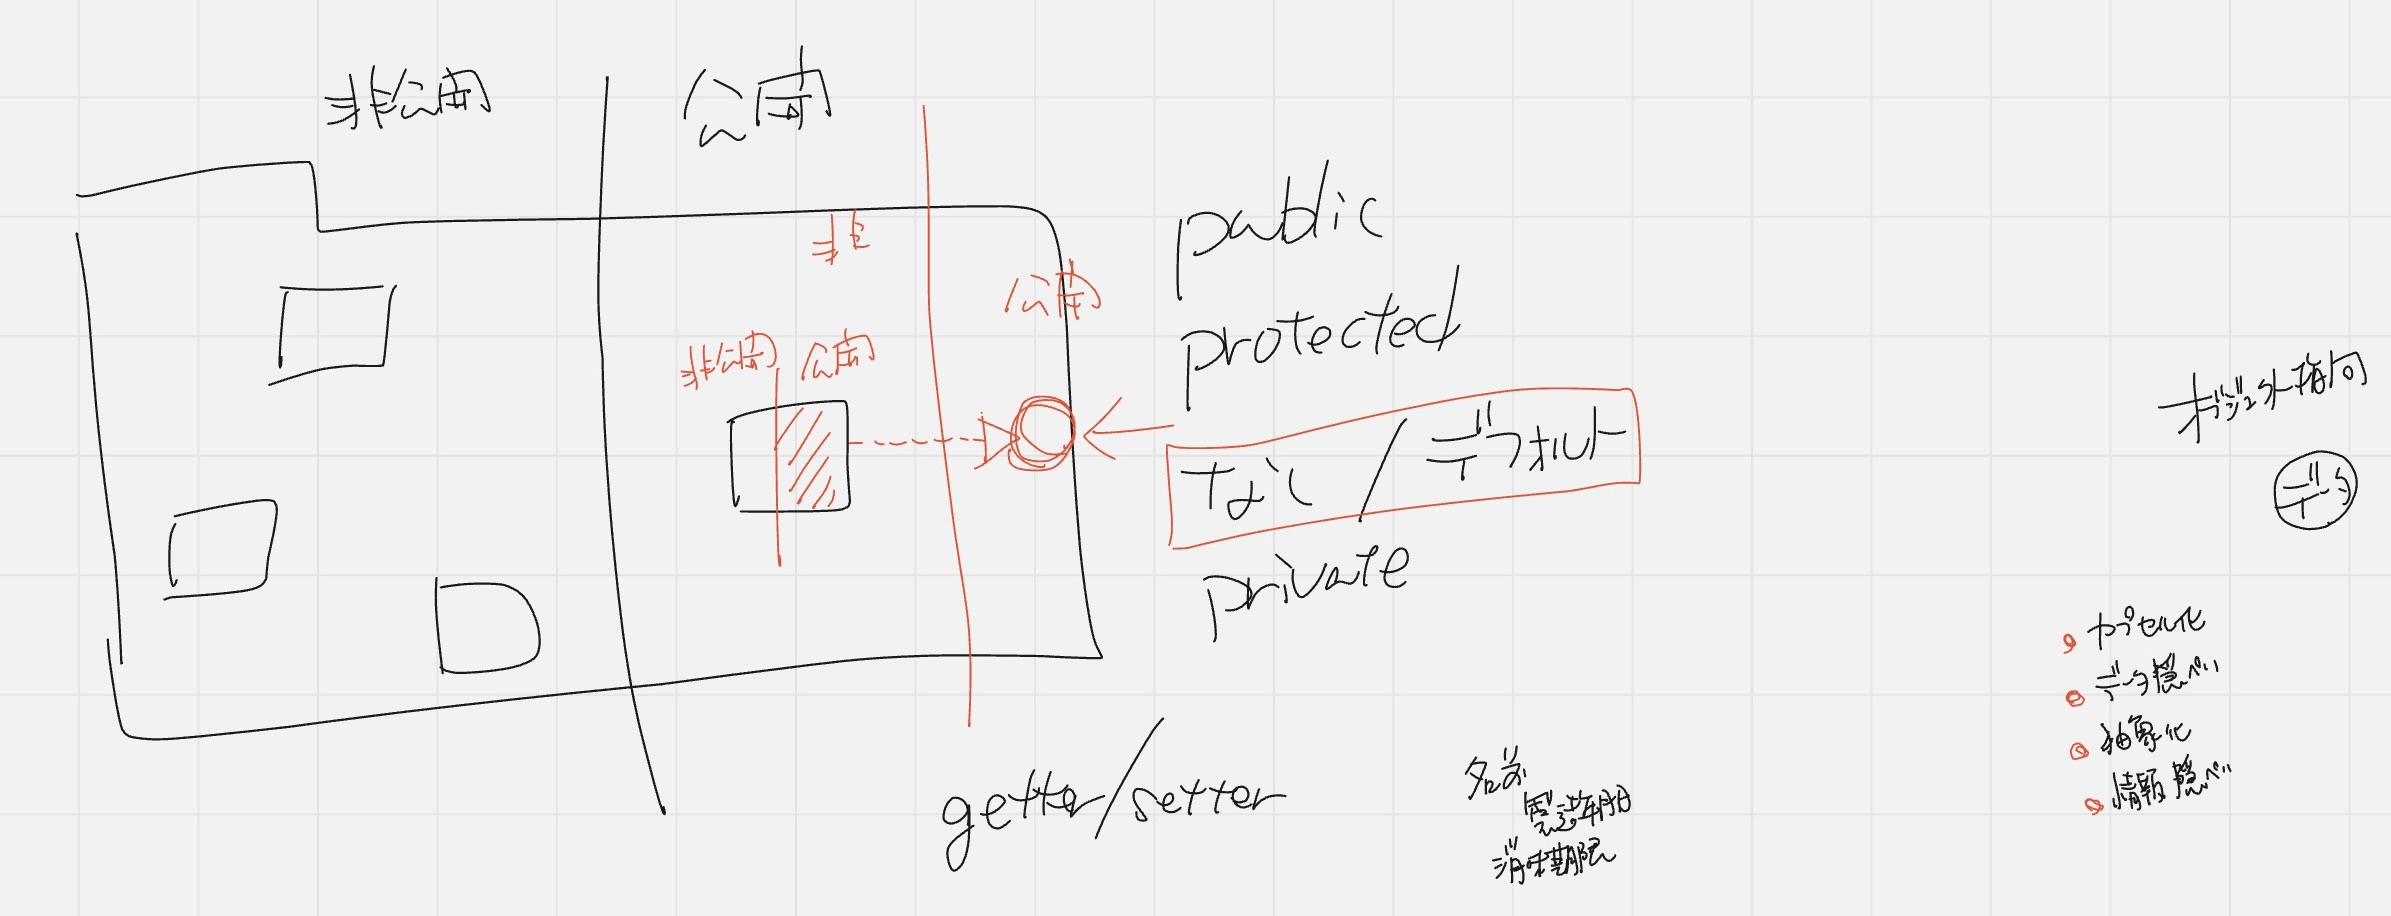 非公開
公開
非
公開
非公開
公開
public
protected
なし / デフォルト
private
getter/setter
名前
製造年月日
消味期限
オブジェクト指向
データ
カプセル化
データ隠ぺい
抽象化
情報隠ぺい